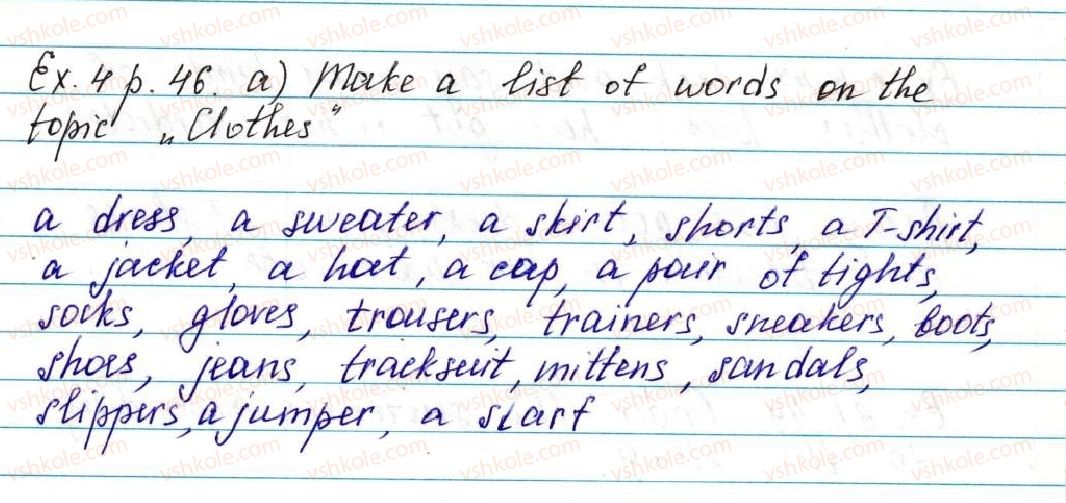 Ex. 4 p. 46. a) Make a list of words on the
topic „Clothes“
a dress, a sweater, a skirt, shorts, a T-shirt,
a jacket, a hat, a cap, a pair of tights,
socks, gloves, trousers, trainers, sneakers, boots,
shoes, jeans, tracksuit, mittens, sandals,
slippers, a jumper, a scarf
vshkole.com